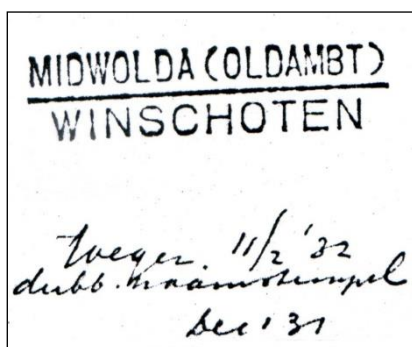 MIDWOLDA (OLDAMBT)
WINSCHOTEN
11/2 '32
dubb. naamstempel
Dec '31